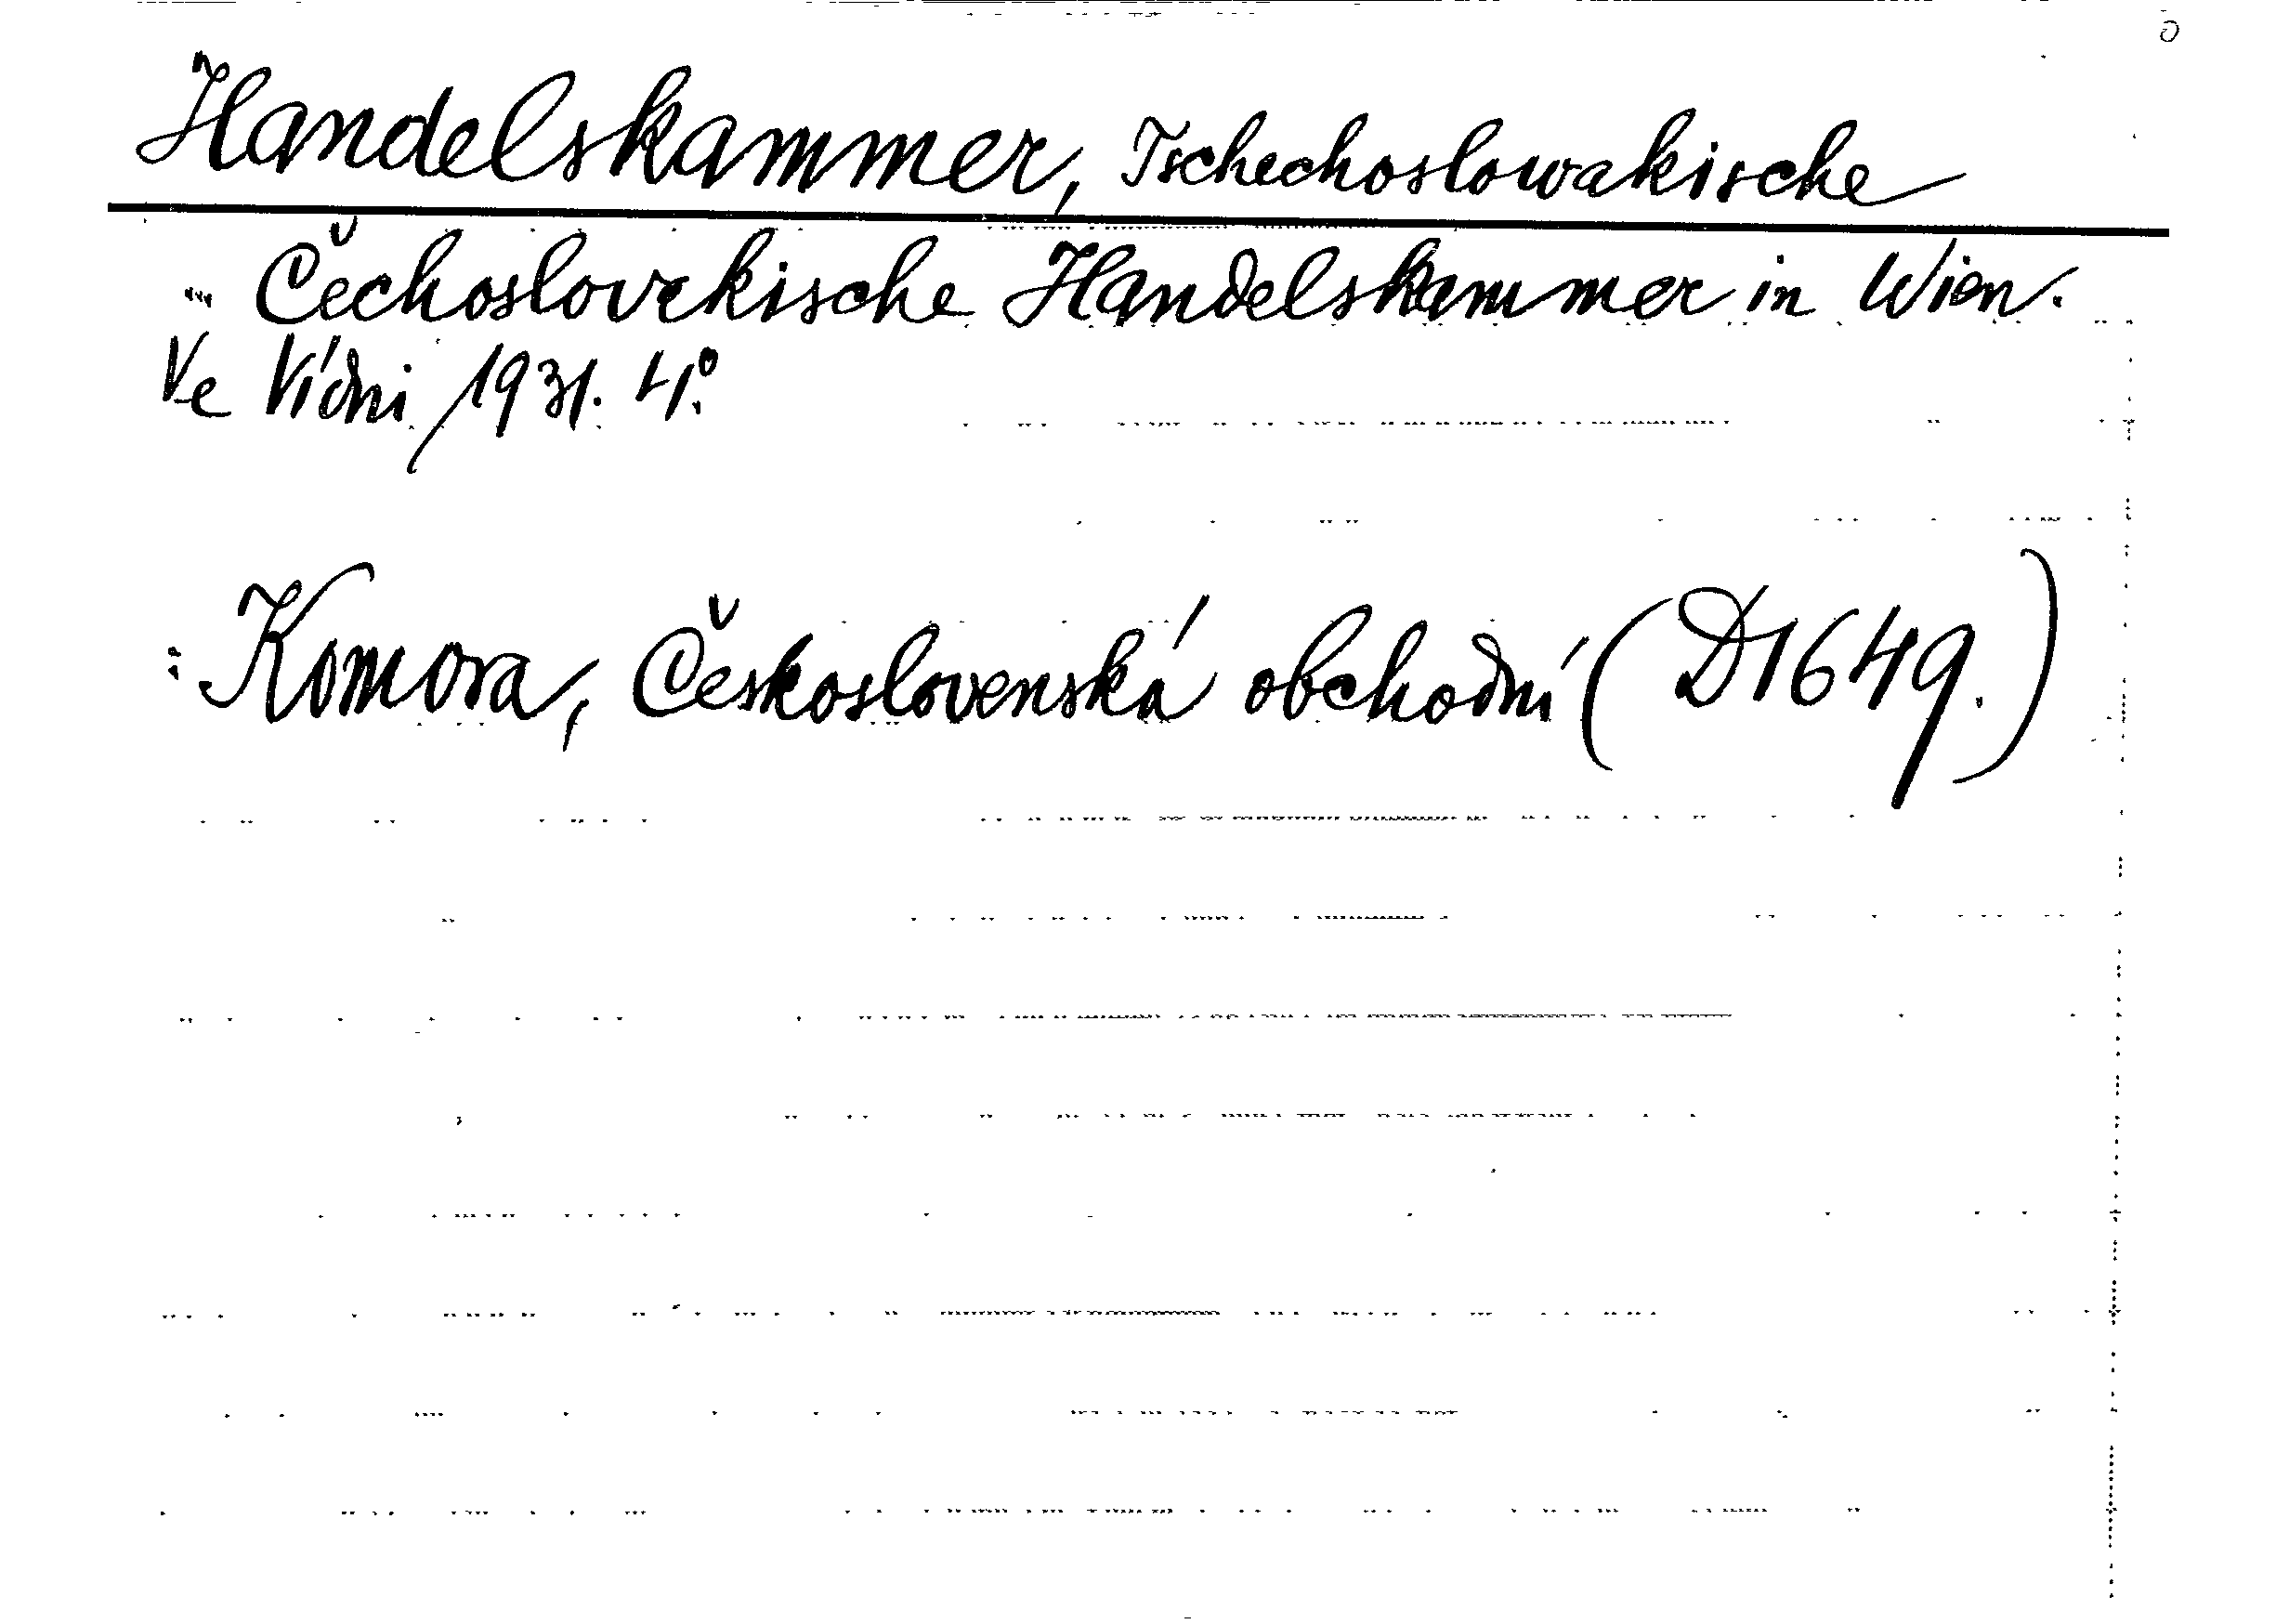 Handelskammer, Tschechoslowakische
Čechoslovakische Handelskammer in Wien.
Ve Vídni, 1931. 4.°
: Komora, Československá obchodní (D1649.)